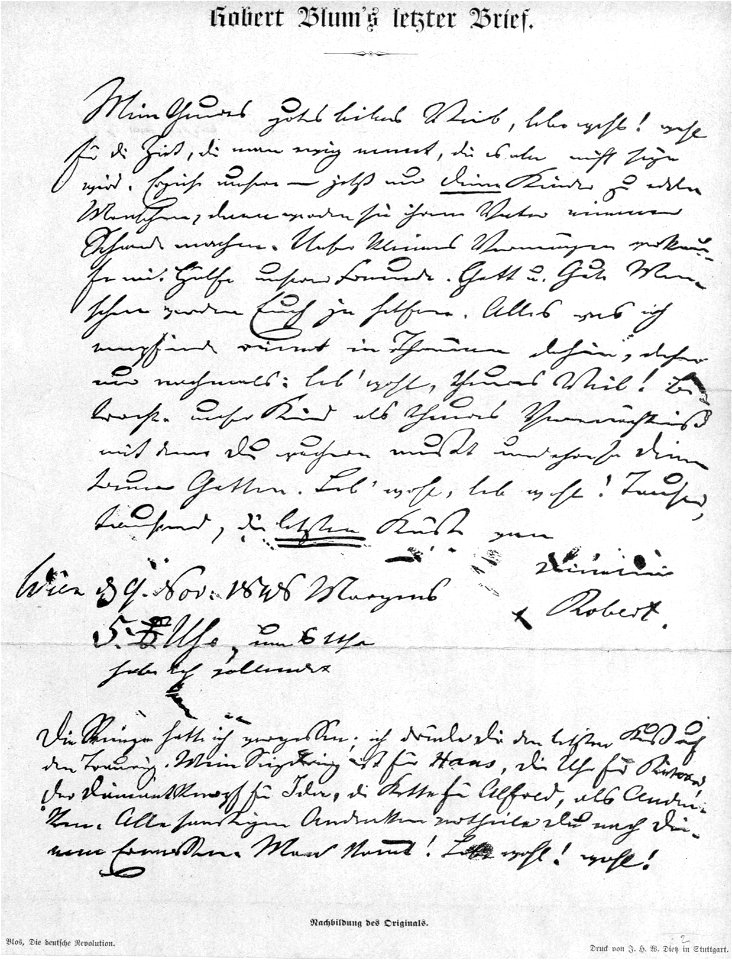 Robert Blum's letzter Brief.
Mein theures gutes liebes Weib, lebe wohl! wohl
für die Zeit, die man ewig nennt, die es aber nicht sein
wird. Erziehe unsere — jetzt nur deine Kinder zu edlen
Menschen, dann werden sie ihrem Vater nimmer
Schande machen. Unser kleines Vermögen verkau-
fe mit Hülfe unserer Freunde. Gott u. gute Men-
schen werden Euch ja helfen. Alles was ich
empfinde rinnt in Thränen dahin, daher
nur nochmals: leb' wohl, theures Weib! Be-
trachte unser Kinder als theures Vermächtniß
mit dem Du wuchern mußt und ehre so Deinen
treuen Gatten. Leb' wohl, leb wohl! Tausend,
tausend, die letzten Küsse von
Deinem
Robert.
Wien d 9. Nov: 1848 Morgens
5 Uhr, um 6 Uhr
habe ich vollendet
Die Ringe hatte ich vergessen; ich drücke Dir den letzten Kuß auf
den Trauring. Mein Siegelring ist für Hans, die Uhr für Richard
der Diamantknopf für Ida, die Kette für Alfred, als Anden-
ken. Alle sonstigen Andenken vertheile Du nach Dei-
nem Ermessen. Man kommt! Lebe wohl! wohl!
Nachbildung des Originals.
Blos, Die deutsche Revolution.
Druck von J. H. W. Dietz in Stuttgart.